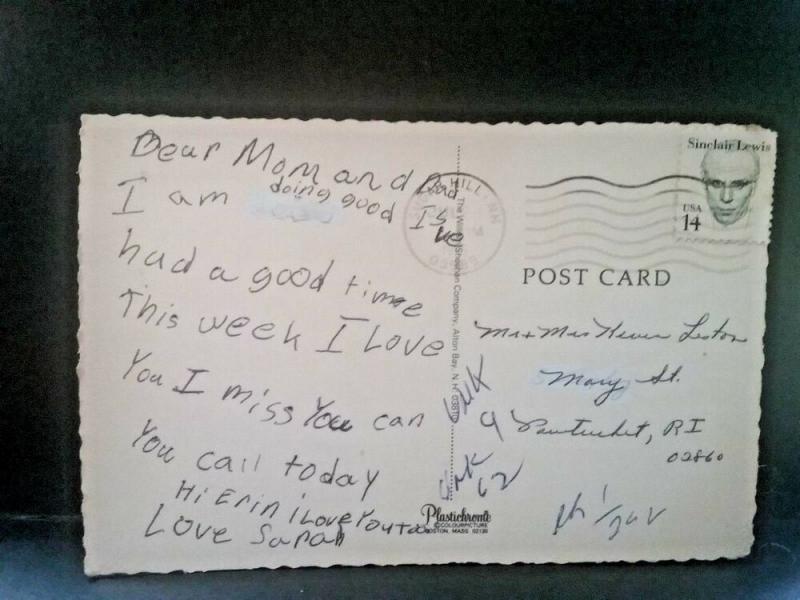 Dear Mom and Dad
I am doing good Is
we
had a good time
This week I Love
You I miss You can
You call today
Hi Erin i Love You Too
Love Sarah
The Sheehan Company, Alton Bay, N.H. 03810
Plastichrome
©COLOURPICTURE
BOSTON, MASS. 02130
HILL NH
Sinclair Lewis
USA
14
POST CARD
Mr + Mrs
Mary St.
Pawtucket, RI
02860
9
62